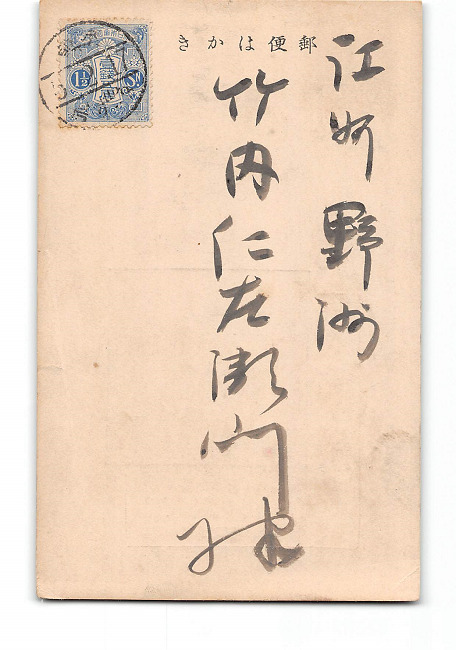 郵便はかき
江州野洲
竹内仁左衛門様
1½ Sn